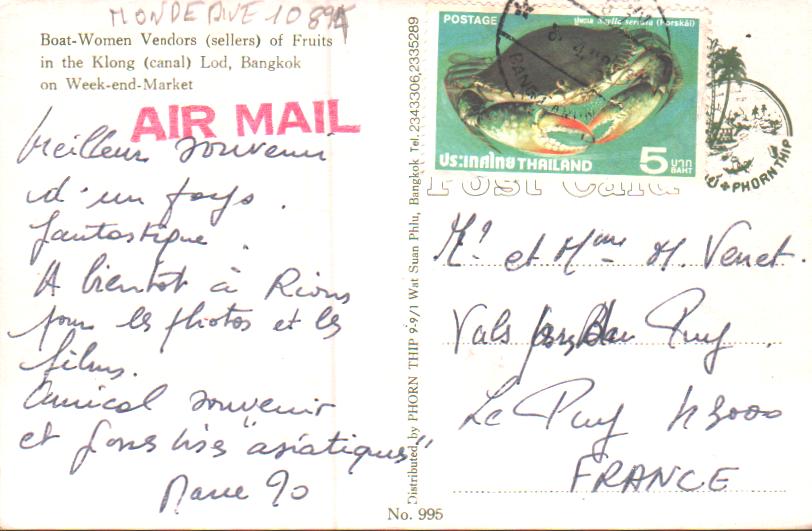 Boat-Women Vendors (sellers) of Fruits
in the Klong (canal) Lod, Bangkok
on Week-end-Market
AIR MAIL
Meilleur souvenir
d'un pays
fantastique.
A bientot à Rions
pour les photos et les
films.
Amical souvenir
et grosses bises "asiatiques"
Distributed by PHORN THIP 9-9/1 Wat Suan Phlu, Bangkok Tel. 2343306,2335289
No. 995
POSTAGE
ประเทศไทย THAILAND
5 บาท
BAHT
PHORN THIP
Post Card
Mr et Mme M. Venet.
Vals Puy.
Le Puy 43000
FRANCE